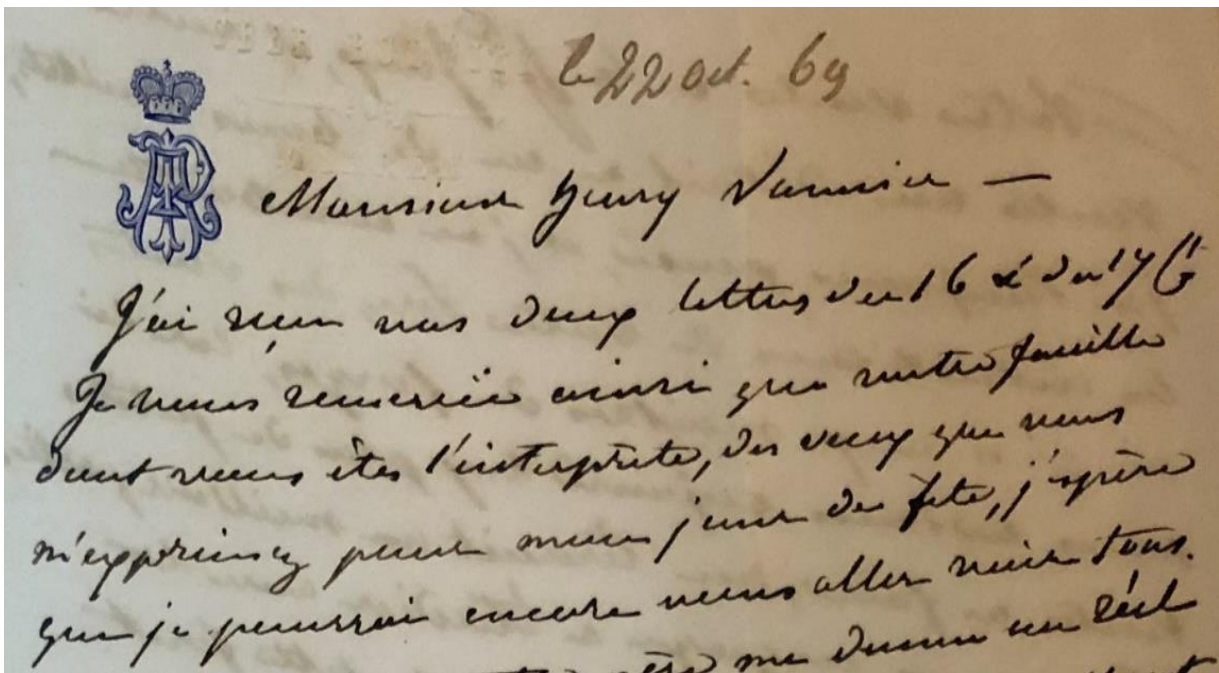 le 22 oct. 69
Monsieur Henry Vannier —
J'ai reçu vos deux lettres du 16 & du 17 Ct
Je vous remercie ainsi que votre famille
dont vous êtes l'interprète, des vœux que vous
m'exprimez pour mon jour de fête, j'espère
que je pourrai encore vous aller voir tous.
me donne un réel